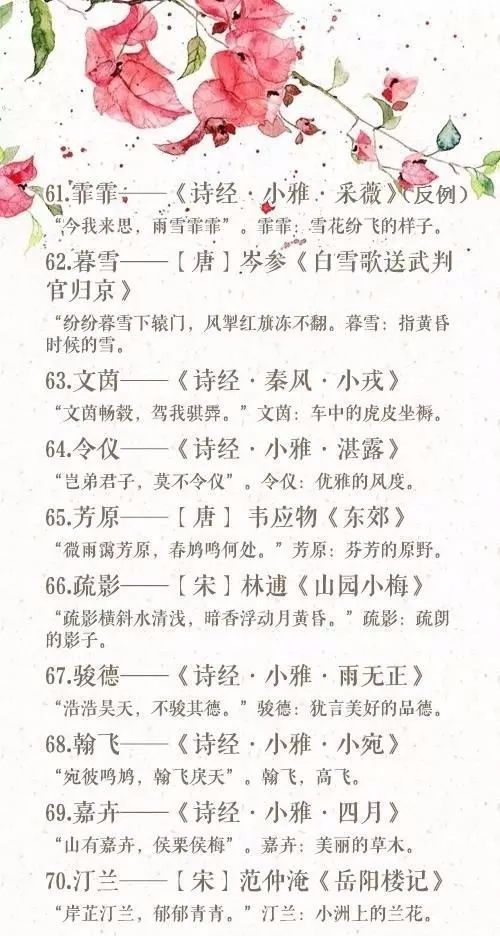 61.霏霏——《诗经·小雅·采薇》（反例）
“今我来思，雨雪霏霏”。霏霏：雪花纷飞的样子。
62.暮雪——【唐】岑参《白雪歌送武判
官归京》
“纷纷暮雪下辕门，风掣红旗冻不翻。暮雪：指黄昏
时候的雪。
63.文茵——《诗经·秦风·小戎》
“文茵畅毂，驾我骐馵。”文茵：车中的虎皮坐褥。
64.令仪——《诗经·小雅·湛露》
“岂弟君子，莫不令仪”。令仪：优雅的风度。
65.芳原——【唐】韦应物《东郊》
“微雨霭芳原，春鸠鸣何处。”芳原：芬芳的原野。
66.疏影——【宋】林逋《山园小梅》
“疏影横斜水清浅，暗香浮动月黄昏。”疏影：疏朗
的影子。
67.骏德——《诗经·小雅·雨无正》
“浩浩昊天，不骏其德。”骏德：犹言美好的品德。
68.翰飞——《诗经·小雅·小宛》
“宛彼鸣鸠，翰飞戾天”。翰飞，高飞。
69.嘉卉——《诗经·小雅·四月》
“山有嘉卉，侯栗侯梅”。嘉卉：美丽的草木。
70.汀兰——【宋】范仲淹《岳阳楼记》
“岸芷汀兰，郁郁青青。”汀兰：小洲上的兰花。